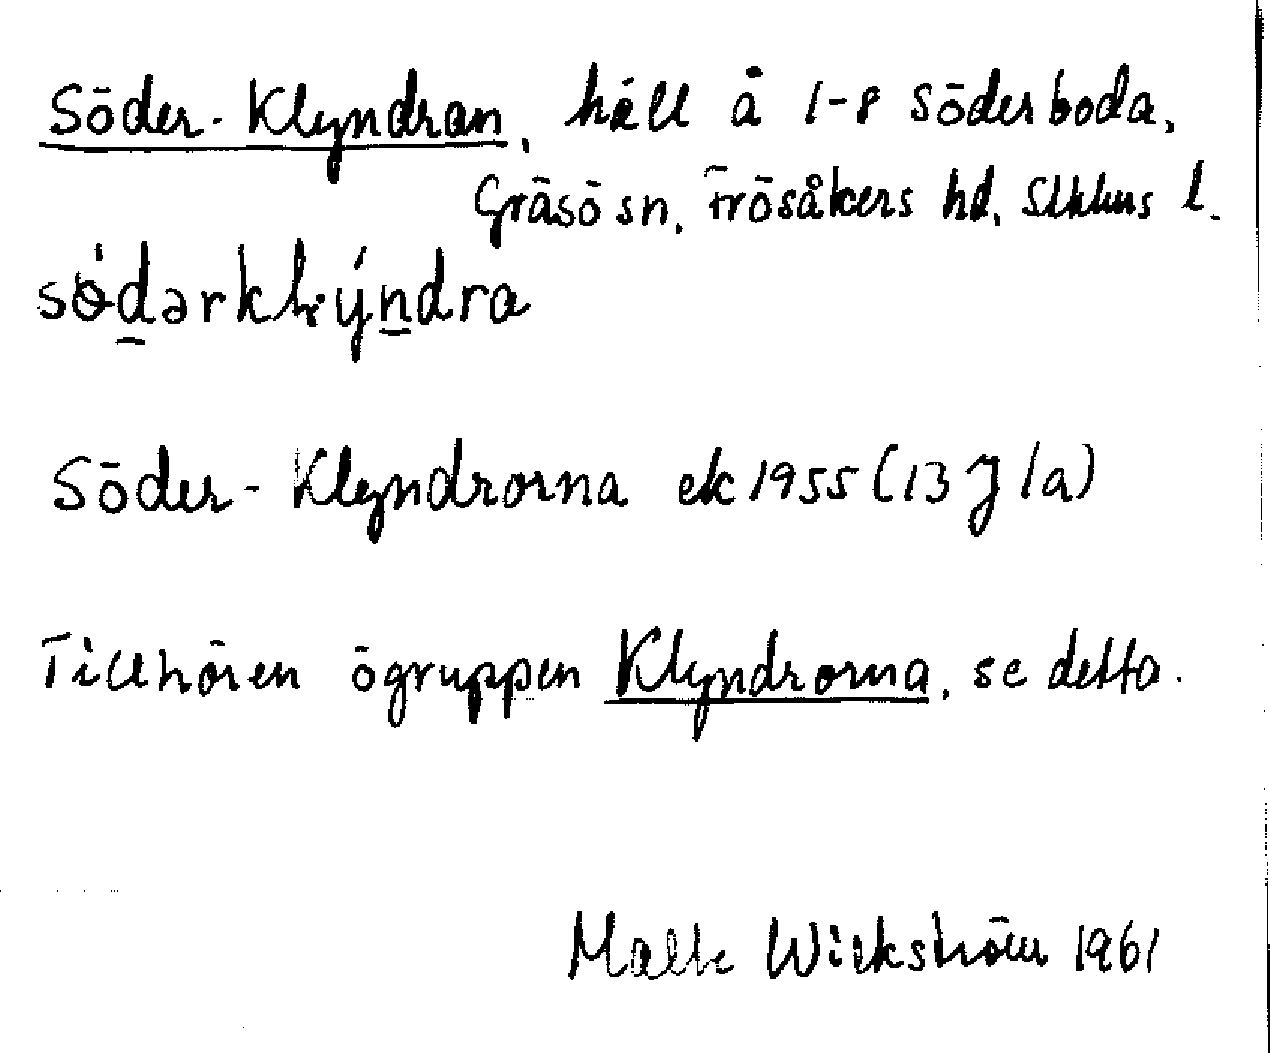 Söder-Klyndran, häll å 1-8 Söderboda,
Gräsö sn, Frösåkers hd, Sthlms l.
Söder-Klyndrorna ek 1955 (13 J 1a)
Tillhören ögruppen Klyndrorna, se detta.
Malte Wickström 1961